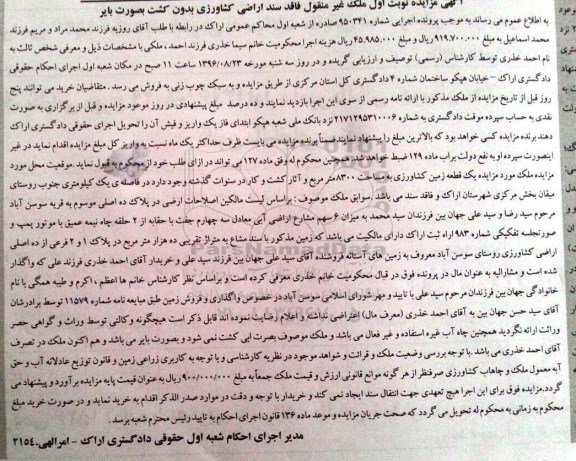 آگهی مزایده نوبت اول ملک غیر منقول فاقد سند اراضی کشاورزی بدون کشت بصورت بایر
به اطلاع عموم می رساند به موجب پرونده اجرایی شماره ۹۵۰۳۴۱ صادره از شعبه اول محاکم عمومی اراک در رابطه با طلب آقای روزبه فرزند محمد مراد و مریم فرزند
محمد اسماعیل به مبلغ ۹۱۹/۷۰۰/۰۰۰ ریال و مبلغ ۴۵/۹۸۵/۰۰۰ ریال هزینه اجرا محکومیت خانم سیما خذری فرزند احمد ، ملکی با مشخصات ذیل و معرفی شخص ثالث به
نام احمد خذری توسط کارشناس (رسمی) توصیف و ارزیابی گردیده و در روز سه شنبه مورخه ۱۳۹۶/۰۸/۲۳ ساعت ۱۱ صبح در مکان شعبه اول اجرای احکام حقوقی
دادگستری اراک - خیابان هپکو ساختمان شماره ۴ دادگستری کل استان مرکزی از طریق مزایده و به سبک چوب زنی به فروش می رسد . متقاضیان خرید می توانند پنج
روز قبل از تاریخ مزایده از ملک مذکور با ارائه نامه رسمی از سوی این اجرا بازدید نمایند و ده درصد مبلغ پیشنهادی در روز موعد مزایده و قبل از برگزاری به صورت
نقدی به حساب سپرده موقت دادگستری به شماره ۲۱۷۱۲۹۵۳۱۰۰۰۶ نزد بانک ملی شعبه هپکو ابتدای فاز یک واریز و فیش آن را تحویل اجرای حقوقی دادگستری اراک
دهند برنده مزایده کسی خواهد بود که بالاترین مبلغ را پیشنهاد نمایند ضمناً برنده مزایده می بایست ظرف حداکثر یک ماه نسبت به واریز کل مبلغ مزایده اقدام نماید در غیر
اینصورت سپرده او به نفع دولت براب ماده ۱۲۹ ضبط خواهد شد. همچنین محکوم له وفق ماده ۱۲۷ می تواند در ازای طلب خود از محکوم به قبول نماید .موقعیت محل مورد
مزایده ملک مورد مزایده یک قطعه زمین کشاورزی به مساحت ۸۳۰۰ متر مربع و آثار کشت و کار در سنوات گذشته وجود دارد در فاصله ی یک کیلومتری جنوب روستای
میقان بخش مرکزی شهرستان اراک و فاقد سند می باشد .سوابق ملک موصوف : براساس لیست مالکین اصلاحات ارضی در پلاک ده اصلی موسوم به قریه سوسن آباد
مرحوم سید رضا و سید علی جهان بین فرزندان سید محمد به میزان ۶ سهم مشارع اراضی آبی معادل سه چهارم جفت با حقابه از ۲ حلقه چاه نیمه عمیق با موتور پمپ و
صورتجلسه تفکیکی شماره ۹۸۳ اراه ثبت اراک دارای مالکیت می باشد که زمین مذکور با سند مشاع به متراژ تقریبی ده هزار متر مربع در پلاک ۱ و ۲ فرعی از ده اصلی
اراضی کشاورزی روستای سوسن آباد معروف به زمین های آستانه فروشنده آقای سید علی جهان بین فرزند سید علی و خریدار آقای احمد خذری فرزند علی که واگذار
شده است و مشارالیه به عنوان مال در پرونده فوق در قبال محکومیت خانم خذری معرفی کرده است و براساس نظر کارشناس خانم ها اعظم ، اکرم و طیبه همگی با نام
خانوادگی جهان بین فرزندان مرحوم سید علی با تایید و مهر شورای اسلامی سوسن آباد در خصوص واگذاری و فروش زمین طبق مبایعه نامه شماره ۱۱۵۷۹ توسط برادرشان
آقای سید حسن جهان بین به آقای احمد خذری (معرف مال) اعتراضی نداشته و اعلام رضایت نموده اند قابل ذکر است هیچگونه وکالتی توسط وراث و گواهی حصر
وراثت ارائه نگردید همچنین چاه آب غیره استفاده و غیر فعال می باشد و ملک موصوف بصرت ابی کشت نمی شود و بصورت بایر می باشد و هم اکنون ملک در تصرف
آقای احمد خذری می باشد .با توجه بررسی وضعیت ملک و قرائت و شواهد موجود در نظریه کارشناسی و با توجه به کاربری زراعی زمین و قانون توزیع عادلانه آب و حق
آبه معمول ملک و چاهاب کشاورزی صرفنظر از هر گونه موانع قانونی ارزش و قیمت ملک جمعاً به مبلغ ۹۰۰/۰۰۰/۰۰۰ ریال به عنوان قیمت پایه مزایده برآورد و پیشنهاد می
گردد.مزایده فوق برای این اجرا هیچ تعهدی جهت انتقال سند ایجاد نمی کند و خریدار با توجه و دقت در موارد صدر الذکر اقدام به خرید نماید و در صورت خرید مبلغ
محکوم به زمانی به محکوم له تحویل می گردد که صحت جریان مزایده و موعد ماده ۱۳۶ قانون اجرای احکام به تایید رئیس محترم شعبه برسد .
مدیر اجرای احکام شعبه اول حقوقی دادگستری اراک - امرالهی.۲۱۵۴